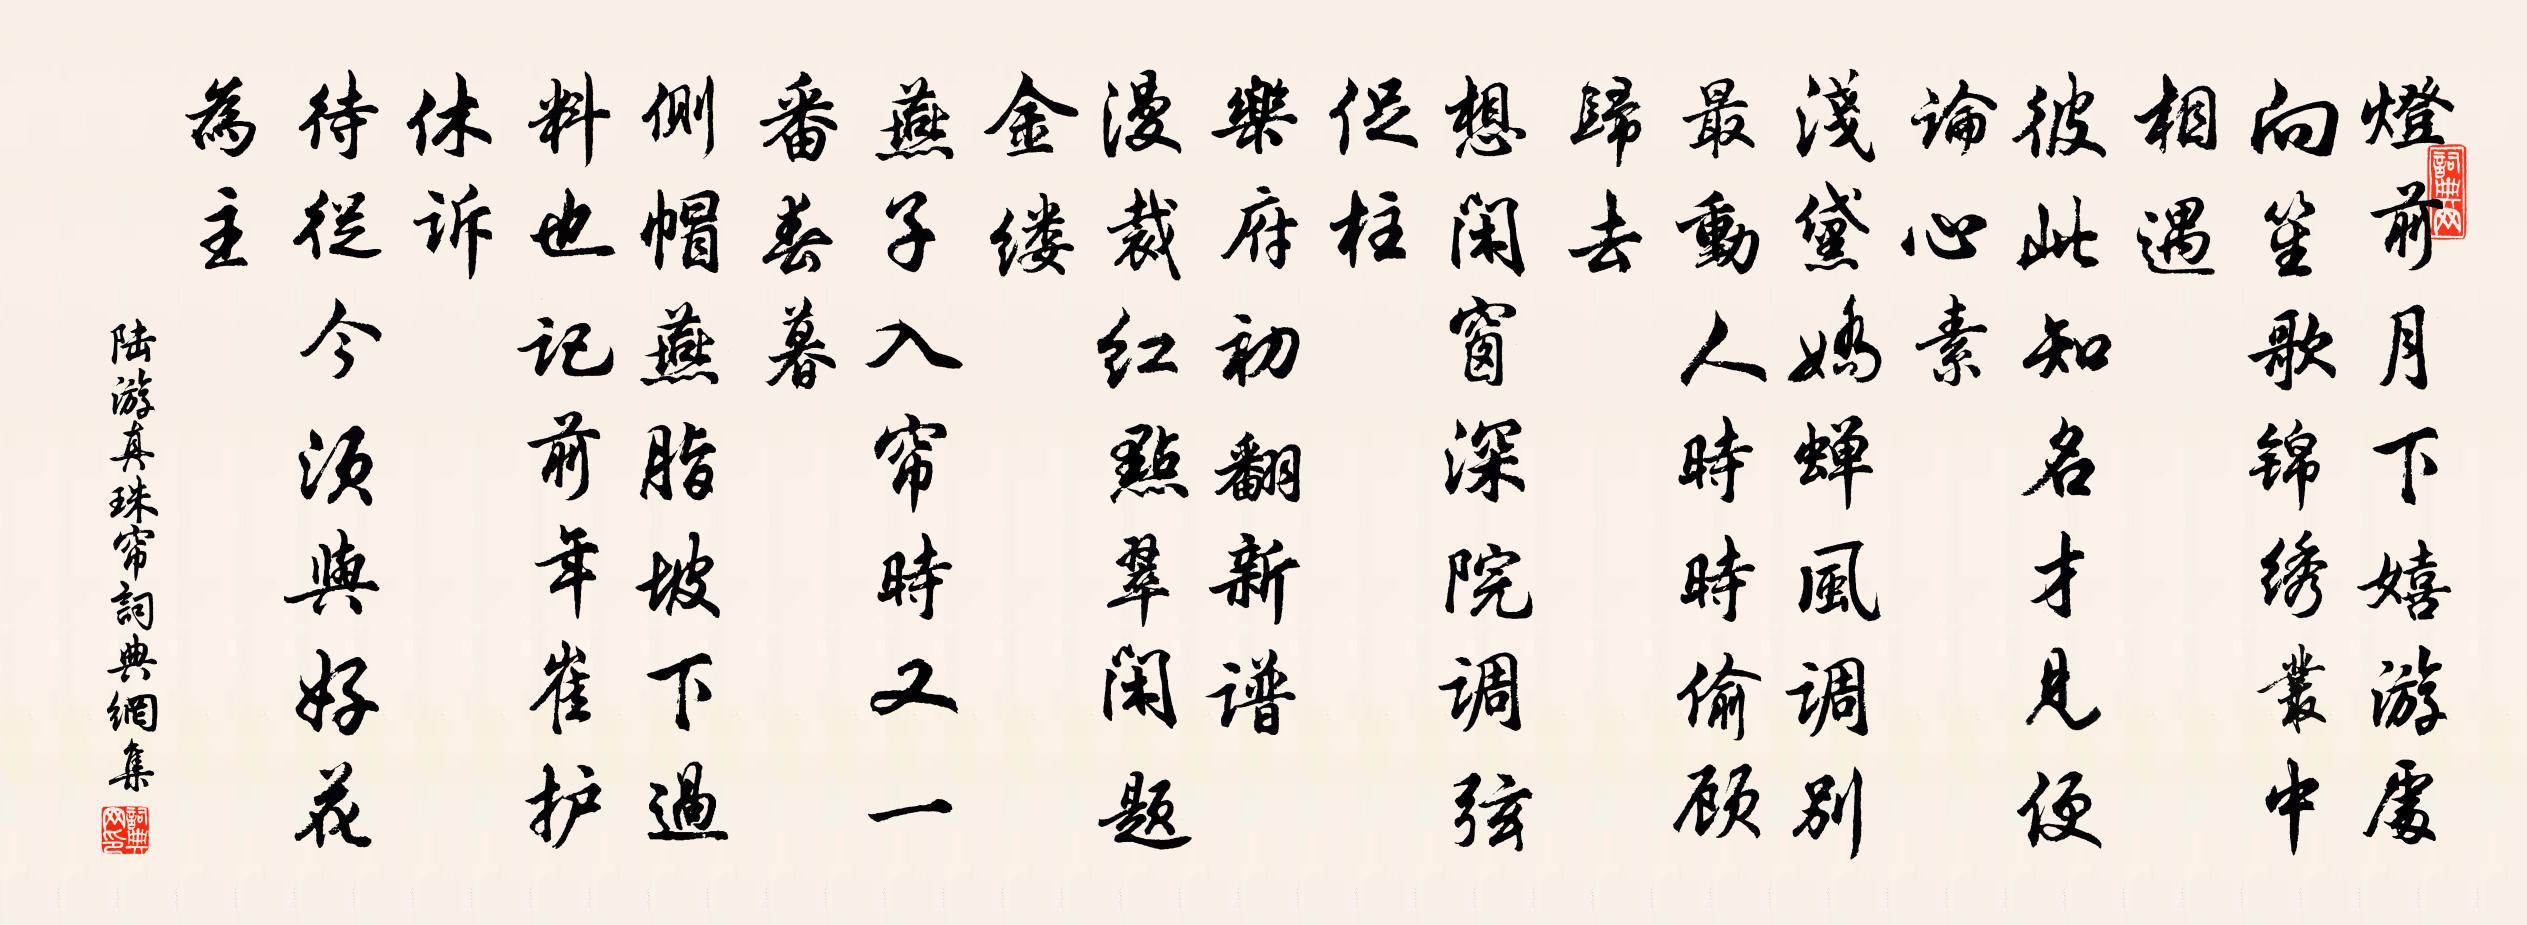 燈前月下嬉游處
向笙歌锦绣叢中
相遇
彼此知名才見便
論心素
淺黛嬌蝉風調别
最動人時時偷顾
歸去
想闲窗深院调弦
促柱
樂府初翻新谱
漫裁红點翠闲题
金缕
燕子入帘時又一
番春暮
側帽燕脂坡下過
料也記前年崔护
休诉
待從今須與好花
為主
陆游真珠帘詞典網集
詞典网
詞典网印